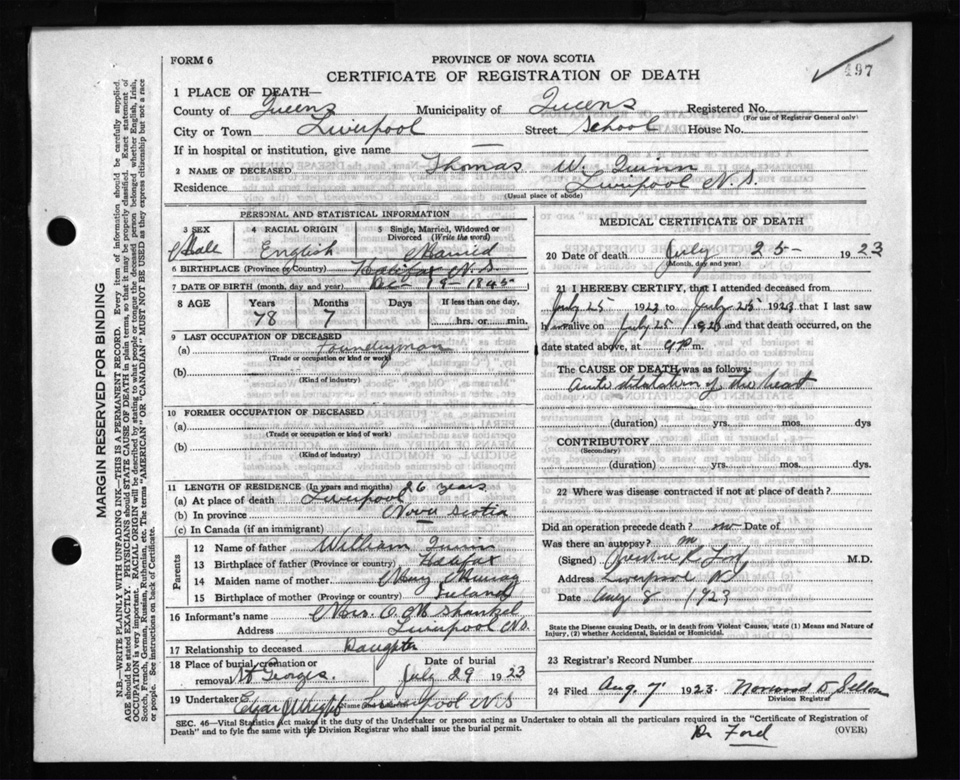 FORM 6
PROVINCE OF NOVA SCOTIA
CERTIFICATE OF REGISTRATION OF DEATH
497
1 PLACE OF DEATH—
County of Queens Municipality of Queens Registered No.
(For use of Registrar General only)
City or Town Liverpool Street School House No.
If in hospital or institution, give name —
2 NAME OF DECEASED Thomas W. Quinn
Residence Liverpool N.S.
(Usual place of abode)
PERSONAL AND STATISTICAL INFORMATION
3 SEX Male
4 RACIAL ORIGIN English
5 Single, Married, Widowed or Divorced (Write the word) Married
6 BIRTHPLACE (Province or Country) Halifax N.S.
7 DATE OF BIRTH (month, day and year) Dec 19 - 1845
8 AGE Years Months Days If less than one day,
78 7 hrs. or min.
9 LAST OCCUPATION OF DECEASED
(a) Foundryman
(Trade or occupation or kind of work)
(b)
(Kind of industry)
10 FORMER OCCUPATION OF DECEASED
(a)
(Trade or occupation or kind of work)
(b)
(Kind of industry)
11 LENGTH OF RESIDENCE (In years and months) 26 years
(a) At place of death Liverpool
(b) In province Nova Scotia
(c) In Canada (if an immigrant)
Parents
12 Name of father William Quinn
13 Birthplace of father (Province or country) Halifax
14 Maiden name of mother Mary
15 Birthplace of mother (Province or country) Ireland
16 Informant's name Mrs. Shankel
Address Liverpool N.S.
17 Relationship to deceased Daughter
18 Place of burial, cremation or removal St Georges.
Date of burial July 29 1923
19 Undertaker Edgar Name Liverpool N.S
MEDICAL CERTIFICATE OF DEATH
20 Date of death July 25 - 1923
(Month, day and year)
21 I HEREBY CERTIFY, that I attended deceased from
July 25 1923 to July 25 1923 that I last saw
h alive on July 25 1923 and that death occurred, on
date stated above, at 9 P m.
The CAUSE OF DEATH was as follows:
Acute dilatation of the heart
(duration) yrs. mos. dys
CONTRIBUTORY
(Secondary)
(duration) yrs. mos. dys.
22 Where was disease contracted if not at place of death?
Did an operation precede death? no Date of
Was there an autopsy? no
(Signed) M.D.
Address Liverpool NS
Date Aug 8 1923
State the Disease causing Death, or in death from Violent Causes, state (1) Means and Nature of Injury, (2) whether Accidental, Suicidal or Homicidal.
23 Registrar's Record Number
24 Filed Aug. 7 1923
Division Registrar
SEC. 46—Vital Statistics Act makes it the duty of the Undertaker or person acting as Undertaker to obtain all the particulars required in the "Certificate of Registration of
Death" and to fyle the same with the Division Registrar who shall issue the burial permit.
(OVER)
Dr Ford
MARGIN RESERVED FOR BINDING
N.B.—WRITE PLAINLY, WITH UNFADING INK—THIS IS A PERMANENT RECORD. Every item of information should be carefully supplied.
AGE should be stated EXACTLY. PHYSICIANS should STATE CAUSE OF DEATH in plain terms, so that it may be properly classified. Exact statement of
OCCUPATION is very important. RACIAL ORIGIN will be described by stating to what people or tongue the deceased person belonged whether English, Irish,
Scotch, French, German, Russian, Ruthenian, etc. The terms "AMERICAN" OR "CANADIAN" MUST NOT BE USED as they express citizenship but not a race
or people. See instructions on back of Certificate.